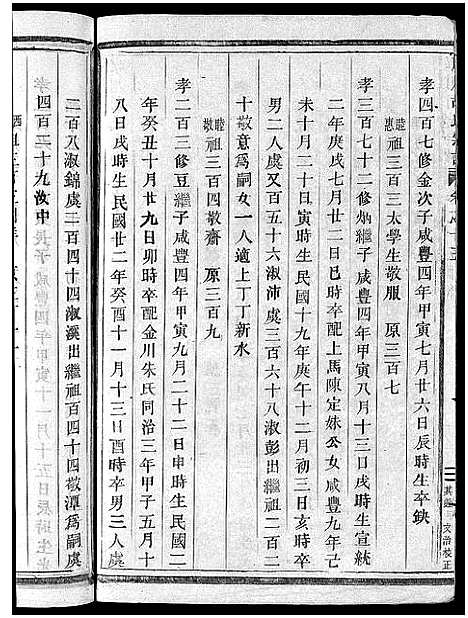 孝四百七修金次子咸豐四年甲寅七月廿六日辰時生卒缺
睦祖三百三太學生敬服 原三百七
惠
孝三百七十二修炳繼子咸豐四年甲寅八月十三日戌時生宣統
二年庚戌七月二日巳時卒配上馬陳定妹公女咸豐九年己
未十月二十日寅時生民國十九年庚午十二月初三日亥時卒
男二人虞又百五十六淑沛虞三百六十八淑彭出繼祖二百二
十敬意為嗣女一人適上丁丁新水
睦祖三百四敬齋 原三百九
敬
孝二百三修豆繼子咸豐四年甲寅九月二十二日申時生民國二
年癸丑十月廿九日卯時卒配金川朱氏同治三年甲子五月十
八日戌時生民國廿二年癸酉十一月十三日酉時卒男三人虞
二百八淑錦虞三百四十四淑溪出繼祖百四十四敬潭為嗣虞
孝四百二十九汝中長子咸豐四年甲寅十一月十五日辰時生光
其鑑 文治校正